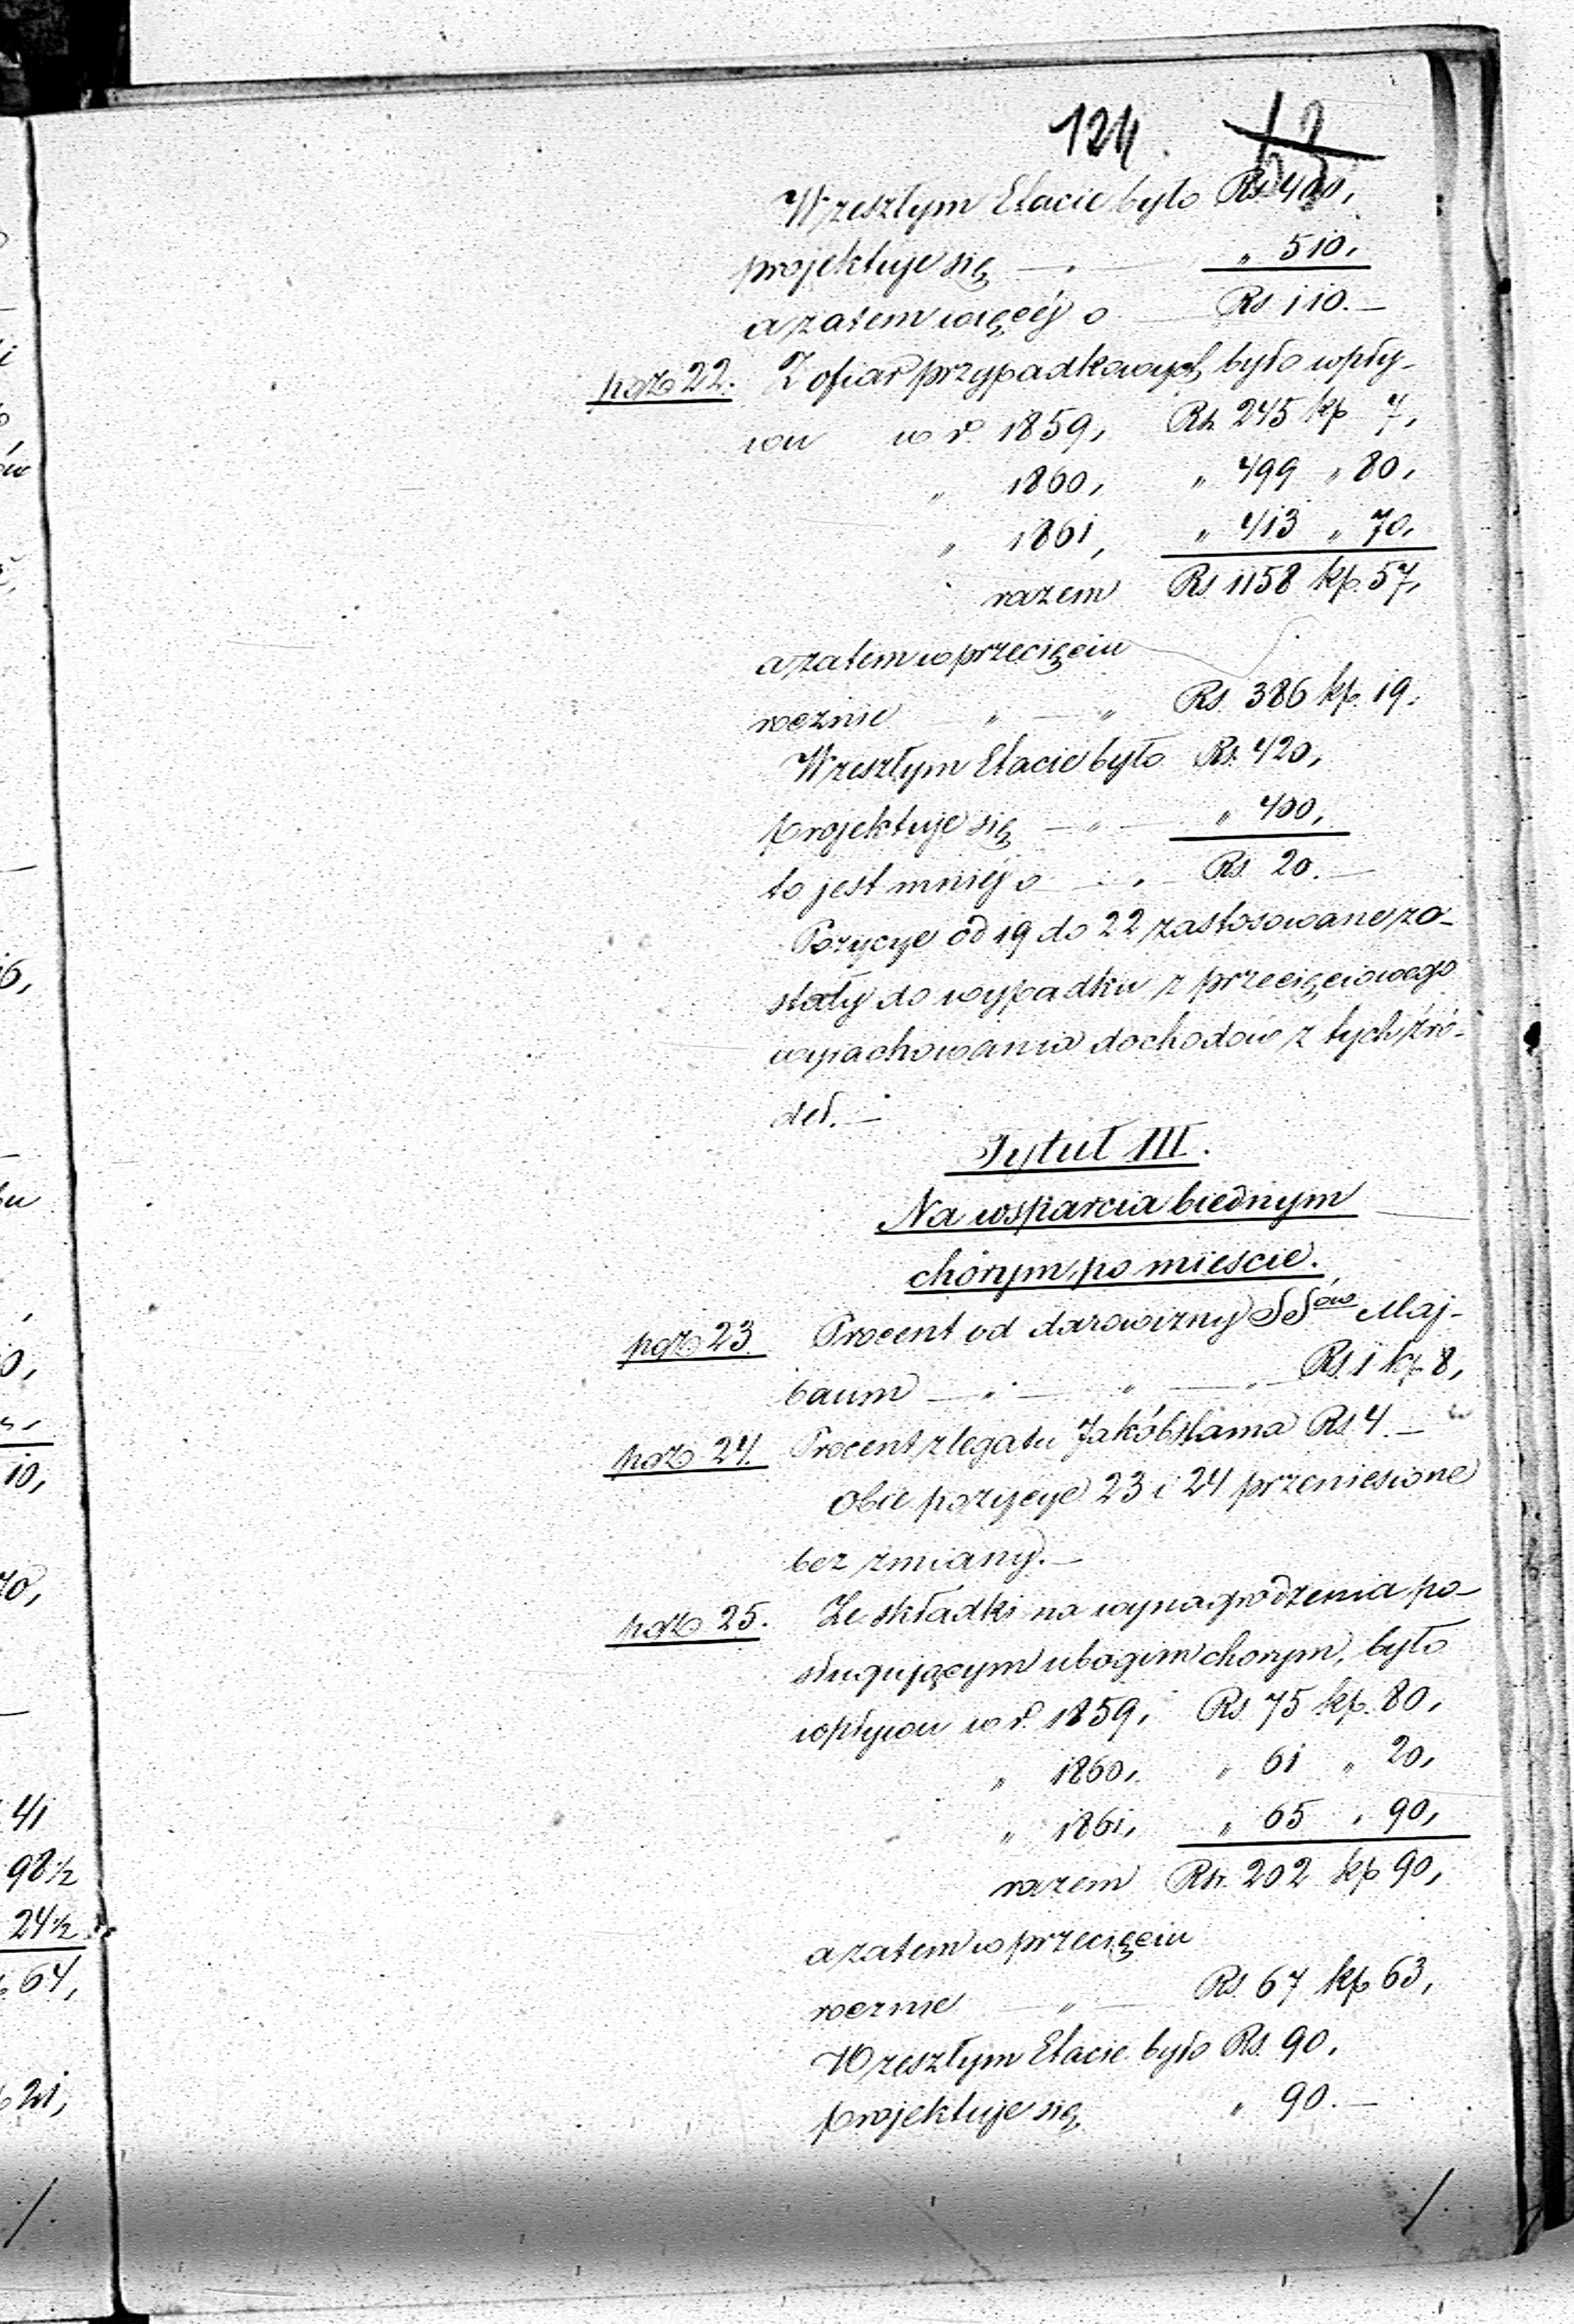 124.
W zeszłym Etacie było Rs 400,
projektuje się — „ — „ 510,
a zatem więcéj o — Rs 110. —
poz 22. Z ofiar przypadkowych było wpły-
wu w r. 1859, Rs. 245 kp 7,
„ 1860, „ 499 „ 80,
„ 1861, „ 413 „ 70,
razem Rs 1158 kp. 57,
a zatem w przecięciu
rocznie „ — „ Rs. 386 kp. 19.
W zeszłym Etacie było Rs. 420,
projektuje się — „ — „ 400,
to jest mniéj o — „ Rs. 20. —
Pozycye od 19 do 22 zastosowane zo-
stały do wypadku z przecięciowego
wyrachowania dochodów z tych źró-
deł. —
Tytuł III.
Na wsparcia biednym
chorym po mieście.
poz 23. Procent od darowizny SSów Maj-
baum — „ — „ — „ — Rs. 1 kp 8,
poz 24. Procent z legatu Jakóba Rs 4. —
Obie pozycye 23 i 24 przeniesione
bez zmiany. —
poz 25. Ze składki na wynagrodzenia po-
sługującym ubogim chorym, było
wpływu w r. 1859, Rs 75 kp. 80,
„ 1860, „ 61 „ 20,
„ 1861, „ 65 „ 90,
razem Rs. 202 kp 90,
a zatem w przecięciu
rocznie — „ — Rs. 67 kp 63,
W zeszłym Etacie było Rs. 90,
projektuje się „ 90. —
41
98 ½
24 ½
64,
21,